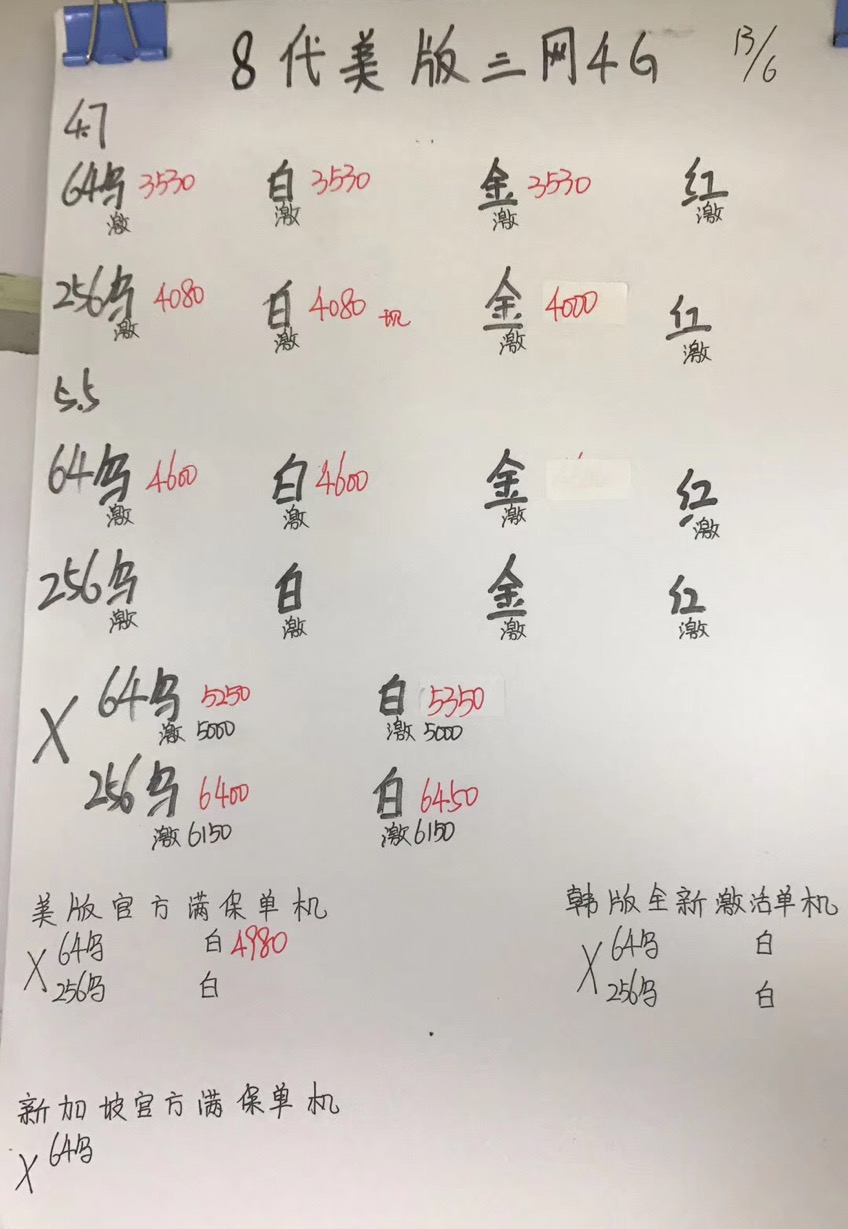 8代美版三网4G 13/6
4.7
64乌 3530 白 3530 金 3530 红
激 激 激 激
256乌 4080 白 4080 金 4000 红
激 激 激 激
5.5
64乌 4600 白 4600 金 红
激 激 激 激
256乌 白 金 红
激 激 激 激
X 64乌 5250 白 5350
激 5000 激 5000
256乌 6400 白 6450
激 6150 激 6150
美版官方满保单机 韩版全新激活单机
X 64乌 白 4980 X 64乌 白
256乌 白 256乌 白
新加坡官方满保单机
X 64乌